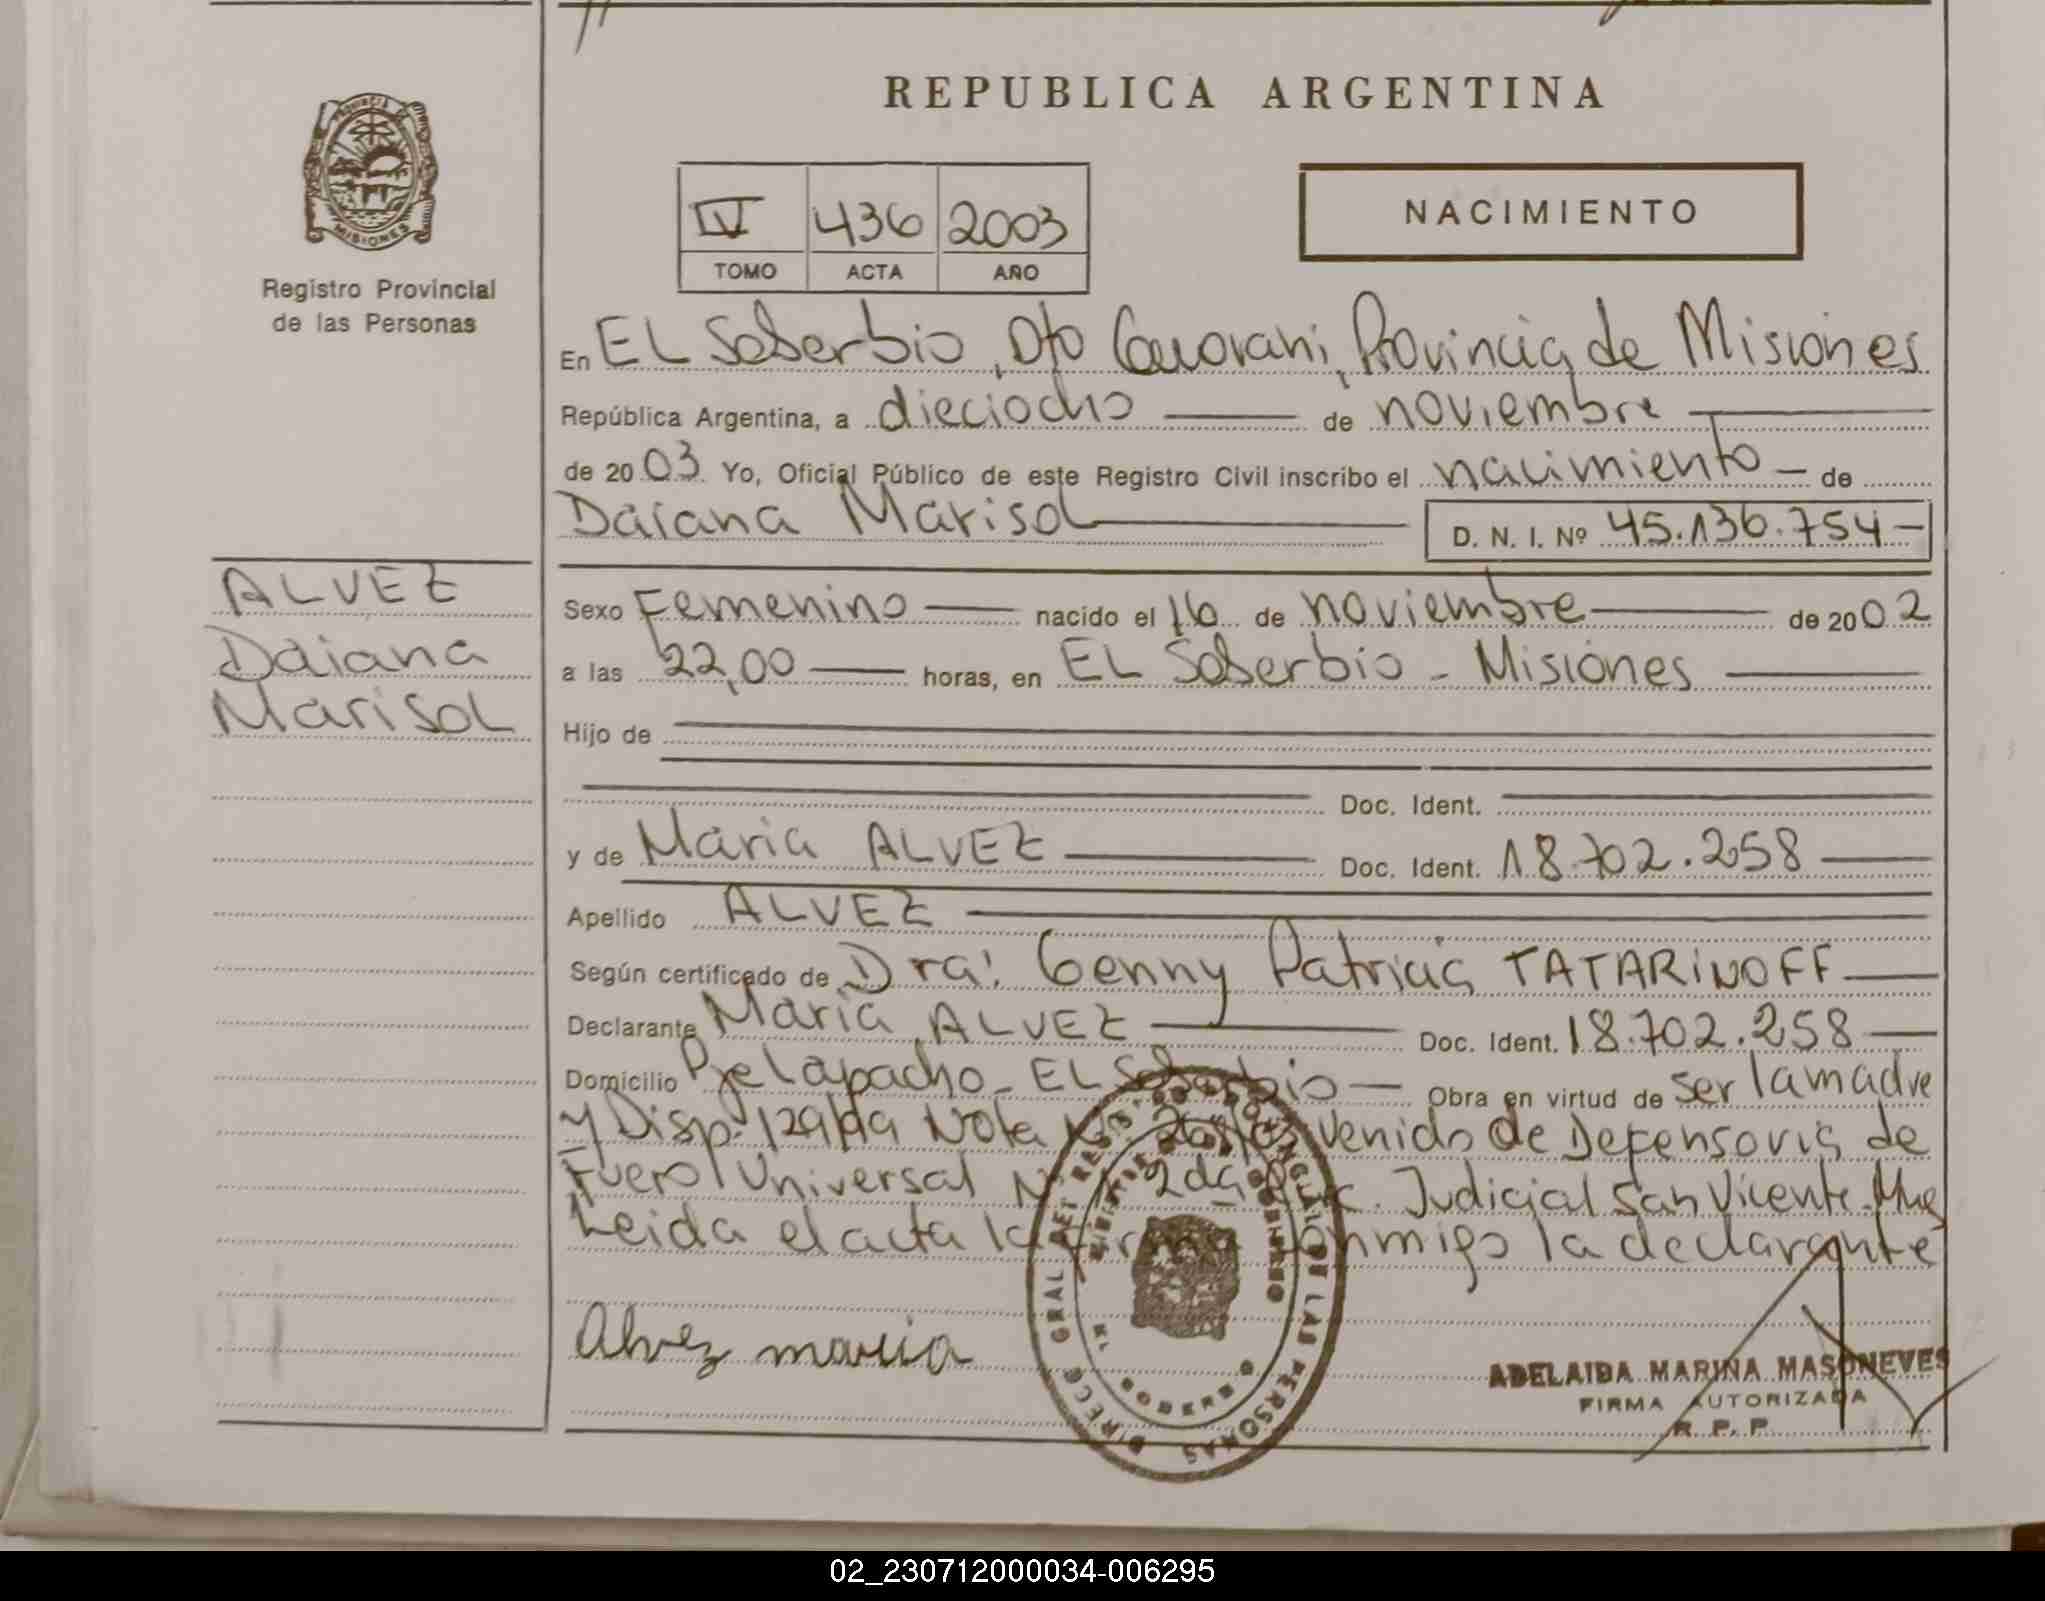 REPUBLICA ARGENTINA
PROVINCIA DE
MISIONES
Registro Provincial
de las Personas
IV 436 2003
TOMO ACTA AÑO
NACIMIENTO
En EL Soberbio, Dto Guarani, Provincia de Misiones
República Argentina, a dieciocho de noviembre
de 2003 Yo, Oficial Público de este Registro Civil inscribo el nacimiento de
Daiana Marisol D. N. I. Nº 45.136.754
ALVEZ
Daiana
Marisol
Sexo Femenino nacido el 16 de noviembre de 2002
a las 22,00 horas, en EL Soberbio - Misiones
Hijo de
Doc. Ident.
y de Maria ALVEZ Doc. Ident. 18.702.258
Apellido ALVEZ
Según certificado de Dra: Genny Patricia TATARINOFF
Declarante Maria ALVEZ Doc. Ident. 18.702.258
Domicilio Pje Lapacho - EL Soberbio Obra en virtud de ser la madre
y Disp. Nota venido de Defensoria de
Fuero Universal 2da Judicial San Vicente
Leida el acta la firma conmigo la declarante
Alvez maria
DIRECC GRAL DEL REG. PROVINCIAL DE LAS PERSONAS
ADELAIDA MARINA MASONEVES
FIRMA AUTORIZADA
R. P. P.
02_230712000034-006295